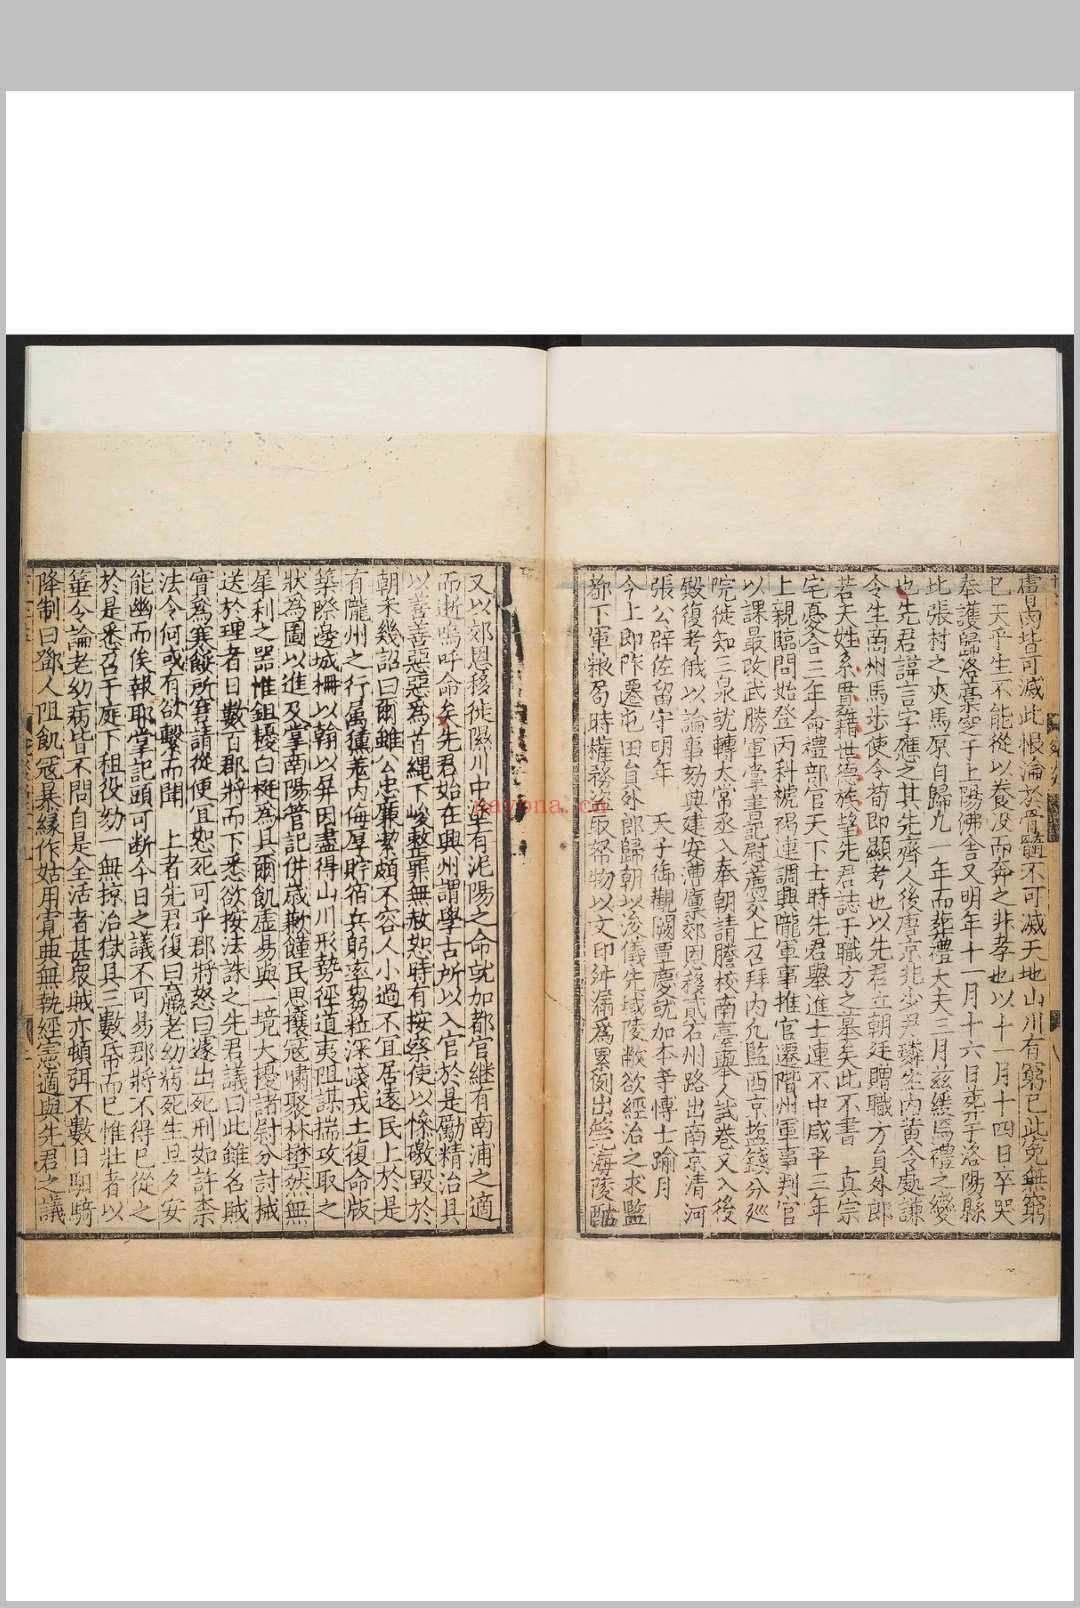 膚芮皆可滅此恨淪於骨髓不可滅天地山川有窮已此冤無窮
已天乎生不能從以養沒而奔之非孝也以十一月十四日卒哭
奉護歸洛藁窆于上陽佛舍又明年十一月十六日葬于洛陽縣
北張村之夾馬原自歸九一年而葬禮大夫三月茲緩焉禮之變
也先君諱言字應之其先齊人後唐京兆少尹璘生內黃令處謙
令生商州馬步使令荀即顯考也以先君立朝廷贈職方員外郎
若夫姓系冑籍世德族望先君誌于職方之墓矣此不書 真宗
宅憂合三年命禮部官天下士時先君舉進士連不中咸平三年
上親臨問始登丙科褫褐連調興隴軍事推官遷階州軍事判官
以課最改武勝軍掌書記尉薦交上召拜內九監西京盐錢分廵
院徙知三泉就轉太常丞入奉朝請謄校南臺舉人試卷又入後
殿復考俄以論事劾與建安漕廣東郊因移貳右州路出南京清河
張公辟佐留守明年 天子御觀闕覃慶就加本寺博士踰月
今上即阼遷屯田員外郎歸朝以浚儀先域陵敝欲經治之求監
鄢下軍粮芻時榷務盜取帑物以文印舛漏為累例出筦海陵酤
又以郊恩移徙隰川中塗有泥陽之命就加都官繼有南浦之適
而逝嗚呼命矣先君始在興州謂學古所以入官於是勵精治具
以善善惡惡為首繩下峻整罪無赦恕時有按察使以條礉毀於
朝未幾詔曰爾雖公忠廉潔頗不容人小過不冝居遠民上於是
有隴州之行属獯羗內侮厚貯宿兵躬率芻粒深踐戎土復命版
築際邊城柵以翰以屏因盡得山川形勢徑道夷阻謀揣攻取之
狀為圖以進及掌南陽管記併歲歉饉民思攘冦嘯聚林樊然無
犀利之器惟鉏擾白梃為具爾飢虛易與一境大擾諸尉分討械
送於理者日數百郡將而下悉欲按法誅之先君議曰此雖名賊
實為寒餒所窘請從便宜恕死可乎郡將怒曰遽出死刑如許柰
法令何或有欲繫而聞 上者先君復曰羸老幼病死生旦夕安
能幽而俟報耶掌記頭可断今日之議不可易郡將不得已從之
於是悉召于庭下租役劾一無掠治獄具三數帋而已惟壯者以
箠令論老幼病皆不問自是全活者甚衆賊亦頓弭不數日馹騎
降制曰鄧人阻飢冦暴緣作姑用寬典無執經憲適與先君之議